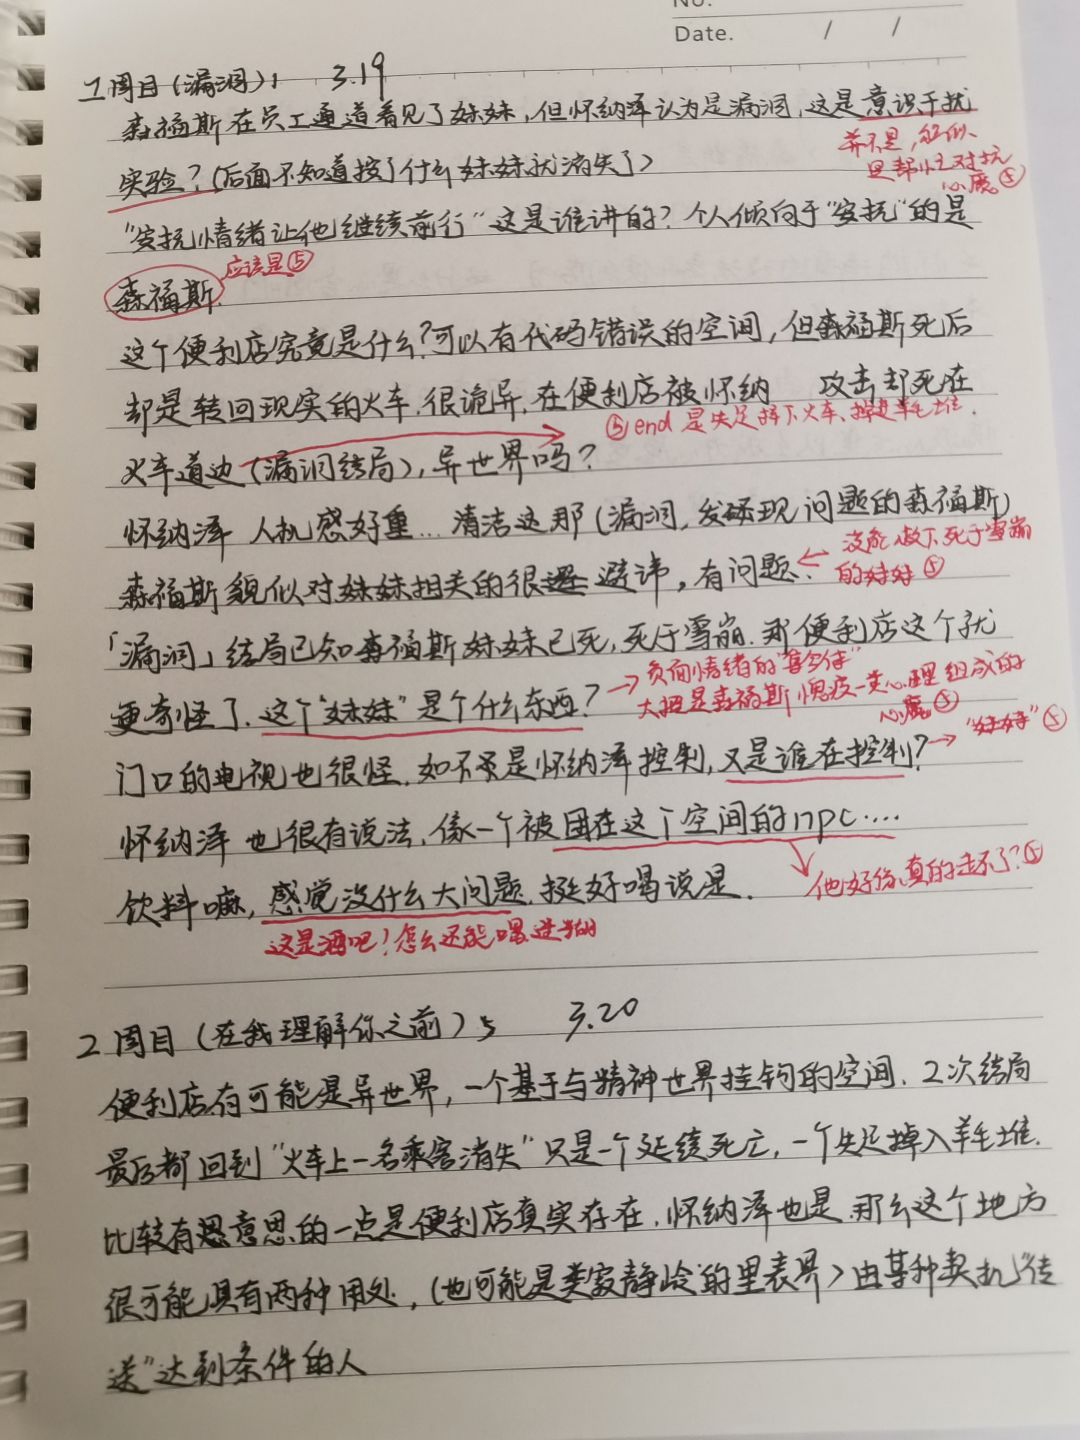 No.
Date. / /
1周目(漏洞): 3.19
森福斯在员工通道看见了妹妹,但怀纳泽认为是漏洞,这是意识干扰
并不是,貌似
是帮忙对抗
心魔⑤
实验?(后面不知道按了什么妹妹就消失了)
"安抚情绪让他继续前行"这是谁讲的?个人倾向于"安抚"的是
应该是⑤
森福斯.
这个便利店究竟是什么?可以有代码错误的空间,但森福斯死后
却是转回现实的火车.很诡异.在便利店被怀纳 攻击却死在
⑤end 是失足掉下火车、掉进羊毛堆.
火车道边(漏洞结局),异世界吗?
怀纳泽 人机感好重...清洁这那(漏洞,发现问题的森福斯)
没能救下死于雪崩
的妹妹⑤
森福斯貌似对妹妹相关的很避讳,有问题.
「漏洞」结局已知森福斯妹妹已死,死于雪崩.那便利店这个就
负面情绪的"集合体"
更奇怪了.这个"妹妹"是个什么东西?
大概是森福斯愧疚一类心理组成的
心魔⑤
门口的电视也很怪.如不是怀纳泽控制,又是谁在控制?
"妹妹"⑤
怀纳泽也很有说法.像一个被困在这个空间的npc....
他好像真的走不了?⑤
饮料嘛,感觉没什么大问题.挺好喝说是.
这是酒吧!怎么还能喝
2周目(在我理解你之前)5 3.20
便利店有可能是异世界,一个基于与精神世界挂钩的空间.2次结局
最后都回到"火车上一名乘客消失"只是一个延续死亡,一个失足掉入羊毛堆.
比较有意思的一点是便利店真实存在.怀纳泽也是.那么这个地方
很可能具有两种用处,(也可能是类寂静岭的里表界)由某种契机"传
送"达到条件的人